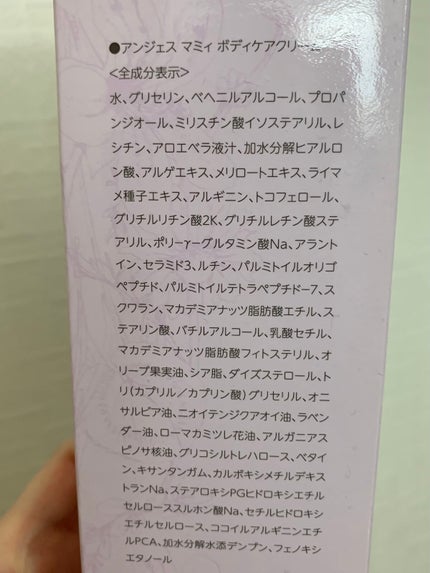 ●アンジェス マミィ ボディケアクリーム
<全成分表示>
水、グリセリン、ベヘニルアルコール、プロパ
ンジオール、ミリスチン酸イソステアリル、レ
シチン、アロエベラ液汁、加水分解ヒアルロ
ン酸、アルゲエキス、メリロートエキス、ライマ
メ種子エキス、アルギニン、トコフェロール、
グリチルリチン酸2K、グリチルレチン酸ステ
アリル、ポリ-γ-グルタミン酸Na、アラント
イン、セラミド3、ルチン、パルミトイルオリゴ
ペプチド、パルミトイルテトラペプチド-7、ス
クワラン、マカデミアナッツ脂肪酸エチル、ス
テアリン酸、バチルアルコール、乳酸セチル、
マカデミアナッツ脂肪酸フィトステリル、オ
リーブ果実油、シア脂、ダイズステロール、ト
リ(カプリル/カプリン酸)グリセリル、オニ
サルビア油、ニオイテンジクアオイ油、ラベン
ダー油、ローマカミツレ花油、アルガニアス
ピノサ核油、グリコシルトレハロース、ベタイ
ン、キサンタンガム、カルボキシメチルデキス
トランNa、ステアロキシPGヒドロキシエチル
セルローススルホン酸Na、セチルヒドロキシ
エチルセルロース、ココイルアルギニンエチ
ルPCA、加水分解水添デンプン、フェノキシ
エタノール